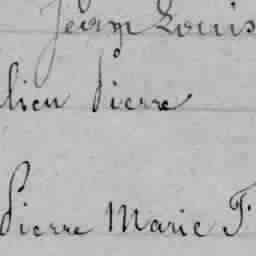 Jean Louis
lien Pierre
Pierre Marie F.